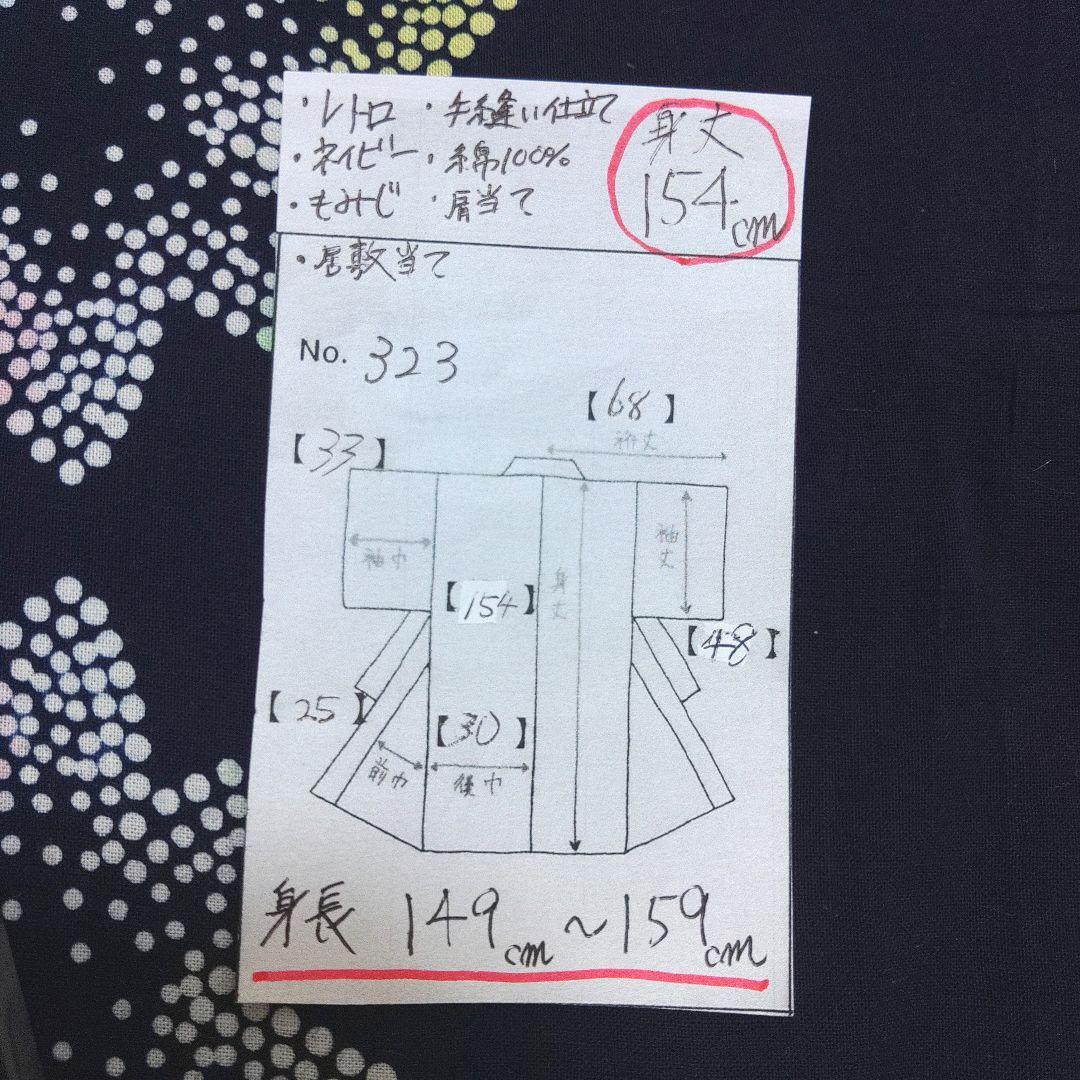 ・レトロ ・手縫い仕立て
・ネイビー ・綿100%
・もみじ ・肩当て
・居敷当て
身丈
154cm
No. 323
【68】
裄丈
【33】
袖巾
袖丈
身丈
【154】
【48】
【25】
【30】
前巾
後巾
身長 149cm～159cm